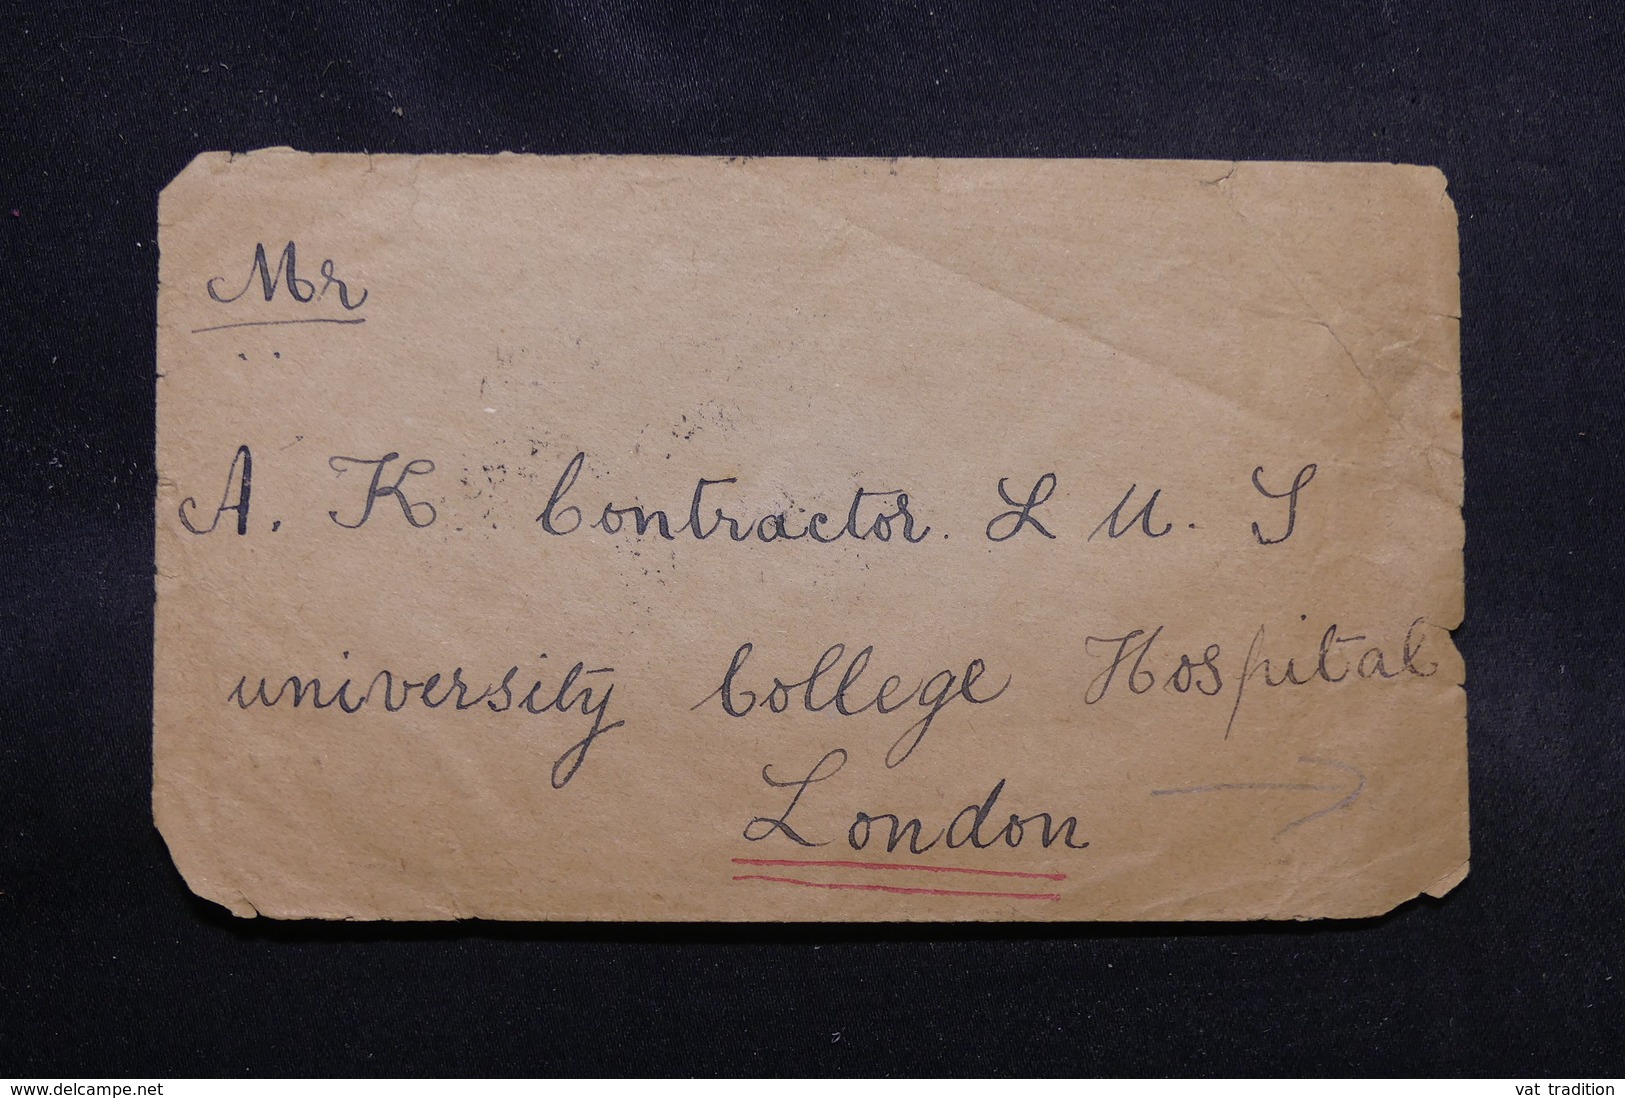 Mr
A. K Contractor. L M. S
university College Hospital
London
www.delcampe.net
vat tradition